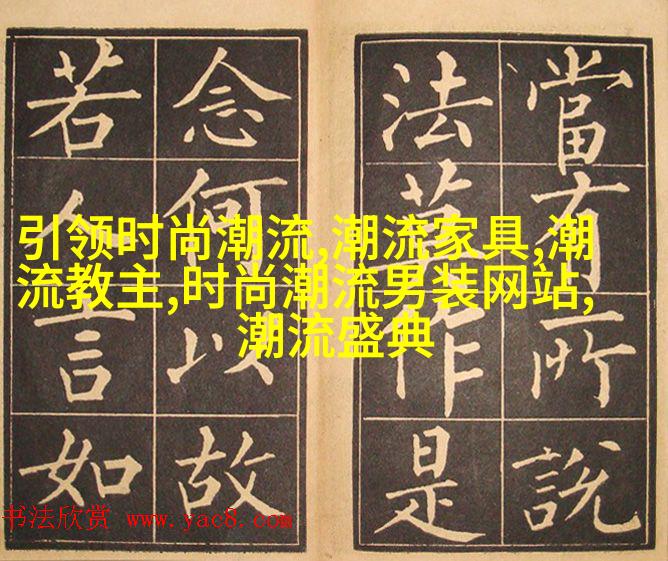 當有所說
法莫作是
念何以故
若人言如
引领时尚潮流,潮流家具,潮
流教主,时尚潮流男装网站,
潮流盛典
书法欣赏 www.yac8.com